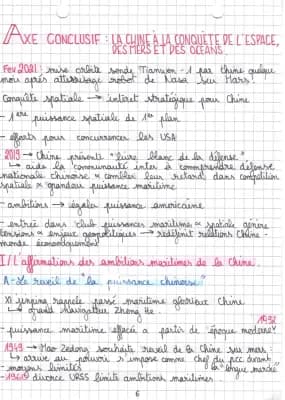 AXE CONCLUSIF : LA CHINE À LA CONQUÊTE DE L'ESPACE,
DES MERS ET DES OCÉANS.
Fev 2021 : mise orbite sonde Tianwen-1 par Chine quelque
mois après atterissage robot de Nasa sur Mars!
Conquête spatiale → intéret stratégique pour Chine
- 1ere puissance spatiale de 1er plan
- efforts pour concurrencer les USA
2019 → Chine présente "livre blanc de la défense"
↳ aide la communauté inter à comprendre défense
nationale chinoise & combler leur retard dans compétition
spatiale & grandeur puissance maritime
- ambitions → égaler puissance américaine
- entrée dans club puissances maritimes & spatiale génère
tensions & enjeux géopolitiques → redéfinit relations Chine -
monde économiquement
I/ L'affirmations des ambitions maritimes de la Chine.
A- Le reveil de "la puissance chinoise"
Xi jinping rappele passé maritime glorieux Chine
↳ grand navigateur Zheng He.
- puissance maritime effacée a partir de époque moderne
1949 → Mao Zedong souhaite reveil de la Chine sur mers :
↳ arrive au pouvoir s'impose comme chef du pcc durant
- moyens limités "la longue marche"
- divorce URSS limite ambitions maritimes
6